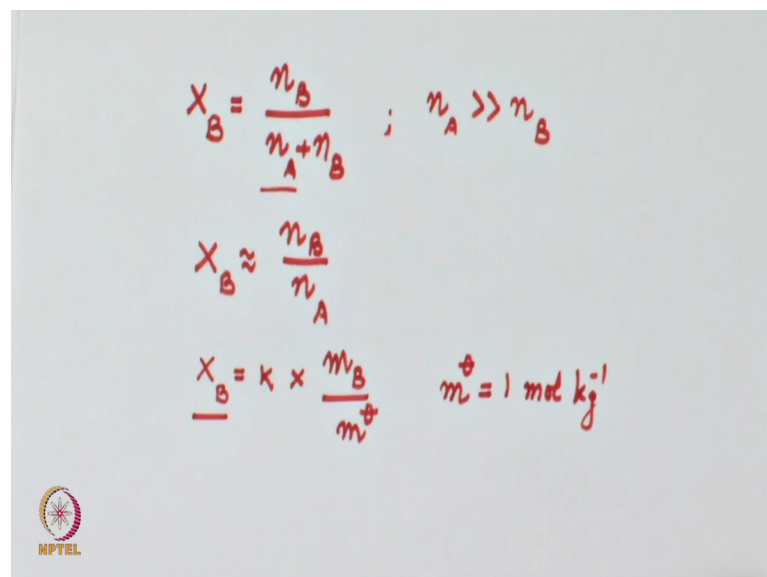 X_B = n_B / (n_A + n_B) ; n_A >> n_B
X_B ≈ n_B / n_A
X_B = K × m_B / m^⦵ m^⦵ = 1 mol kg^-1
NPTEL